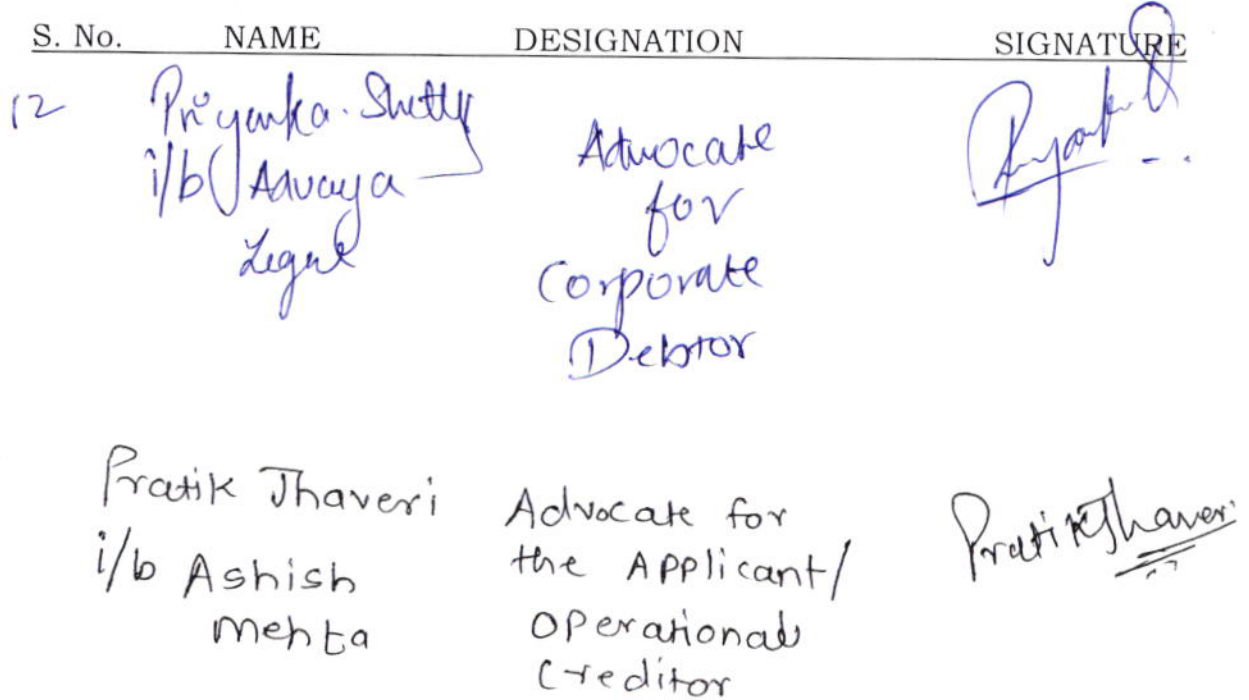 S. No. NAME DESIGNATION SIGNATURE
12 Priyanka. Shetty
i/b Aavaya
Legal
Advocate
for
Corporate
Debtor
Pratik Jhaveri
i/b Ashish
Mehta
Advocate for
the Applicant/
Operational
Creditor
Pratik Jhaveri